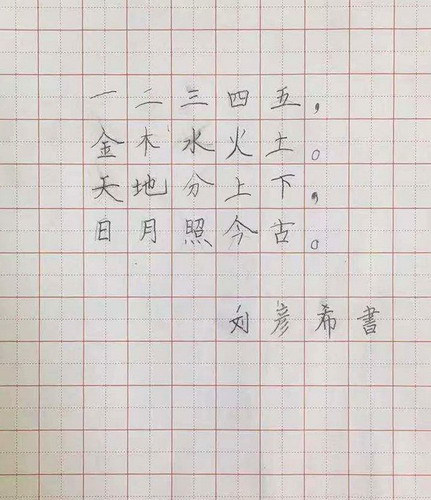 一二三四五，
金木水火土。
天地分上下，
日月照今古。
刘彦希書